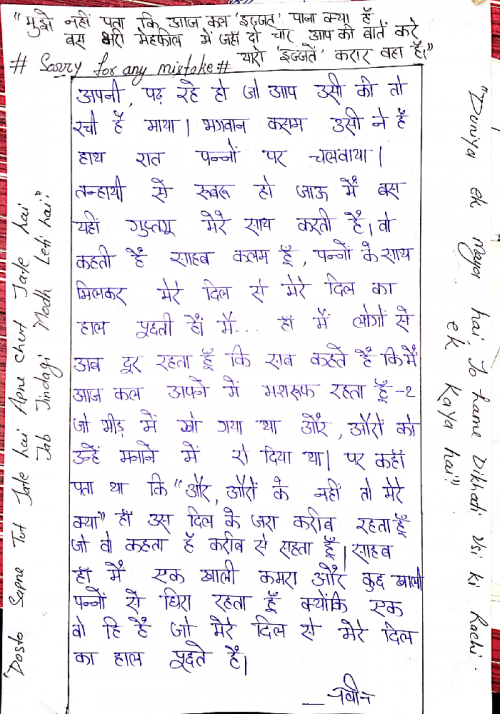 "मुझे नहीं पता कि आज कल 'इज्जत' पाना क्या है
बस भरी मेहफील में जहां दो चार आप की बातें करे
यारो 'इज्जतें' करार वहा है।"
# Sorry for any mistake #
अपनी, पढ़ रहे हो जो आप उसी की तो
रची है माया। भगवान कसम उसी ने है
हाथ रात पन्नों पर चलवाया।
तन्हायी से रूबरू हो जाऊ मैं बस
यही गुफ्तगू मेरे साथ करती है। वो
कहती है साहब कलम हूँ, पन्नों के साथ
मिलकर मेरे दिल से मेरे दिल का
हाल पूछती हों मैं... हाँ में लोगों से
अब दूर रहता हूँ कि सब कहते है कि मैं
आज कल अपने में मशरूफ रहता हूँ -2
जो भीड़ में खो गया था और, औरों को
उन्हें मनाने में रो दिया था। पर कहाँ
पता था कि "और, औरों के नहीं तो मेरे
क्या" हाँ उस दिल के जरा करीब रहता हूँ
जो वो कहता है करीब से सहता हूँ। साहब
हाँ मैं एक खाली कमरा और कुछ खाली
पन्नों से घिरा रहता हूँ क्योंकि एक
वो हि है जो मेरे दिल से मेरे दिल
का हाल पूछते है।
-नवीन
"Dosto Sapne Tut Jate hai Apne chut Jate hai
Jab Jindagi Modh Leti hai"
"Duniya ek maya hai, Jo hame Dikhati Usi ki Rachi
ek Kaya hai."